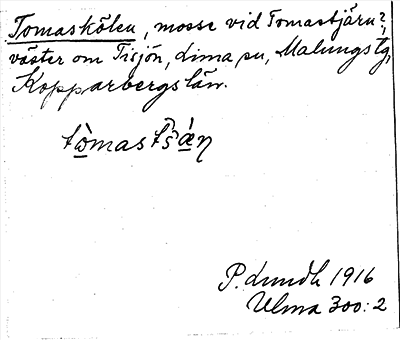 Tomaskölen, mosse vid Tomastjärn?,
väster om Tisjön, Lima sn, Malungs tg,
Kopparbergs län.
P. Lundh 1916
Ulma 300:2